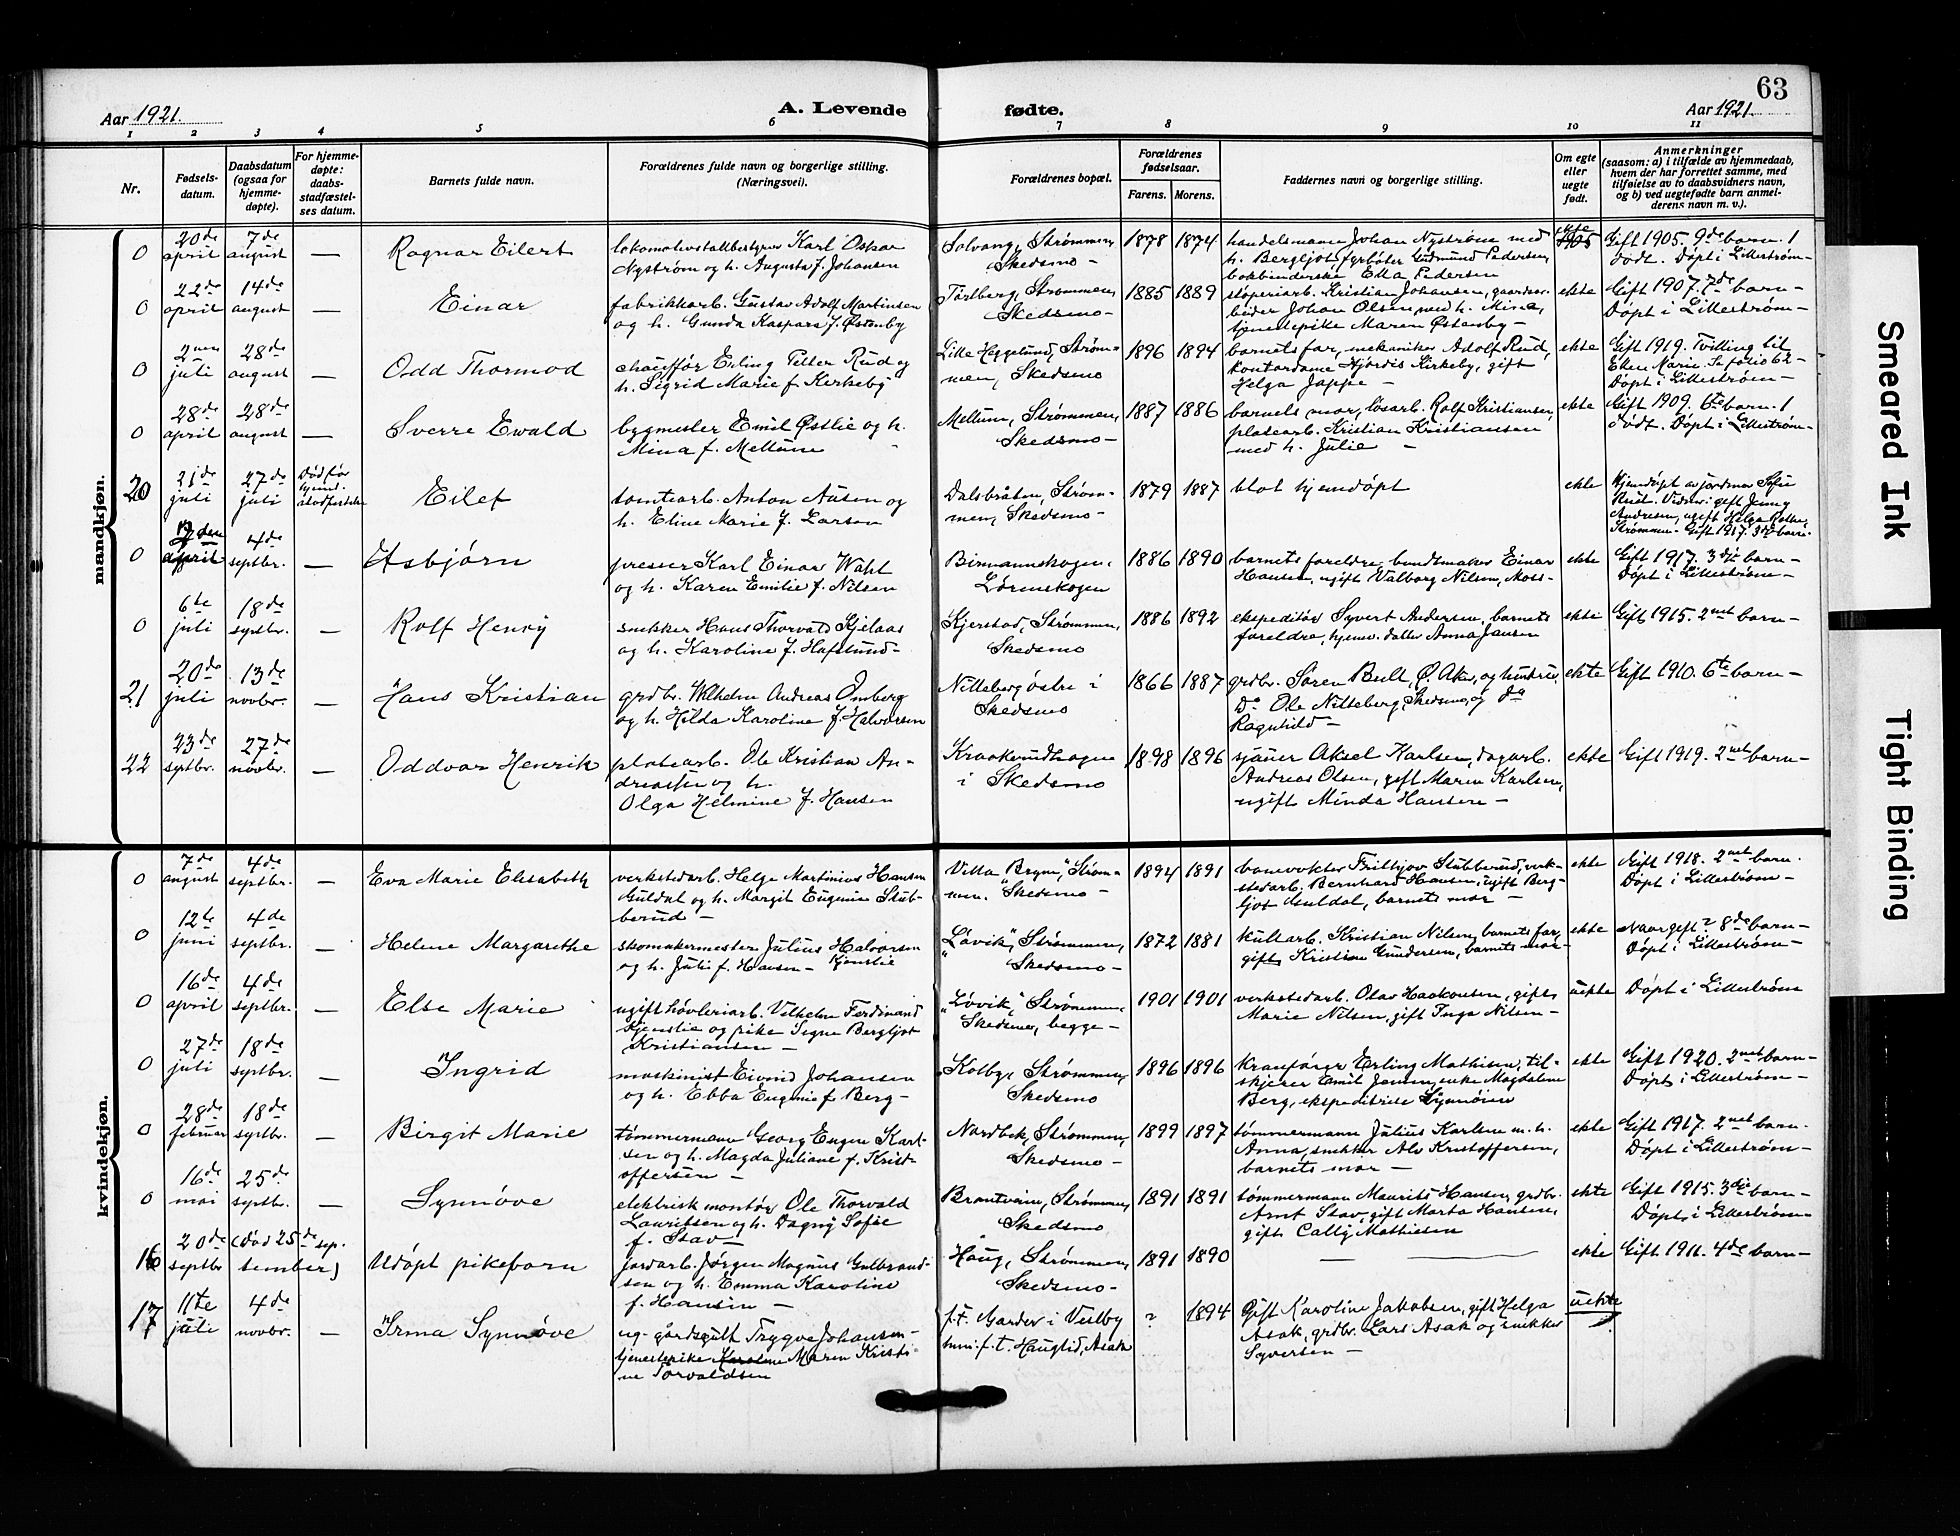 63
Aar 1921.
A. Levende
fødte.
Aar 1921.
1 2 3 4 5 6 7 8 9 10 11
Nr.
Fødsels-
datum.
Daabsdatum
(ogsaa for
hjemme-
døpte).
For hjemme-
døpte:
daabs-
stadfæstel-
ses datum.
Barnets fulde navn.
Forældrenes fulde navn og borgerlige stilling.
(Næringsvei).
Forældrenes bopæl.
Forældrenes
fødselsaar.
Farens. Morens.
Faddernes navn og borgerlige stilling.
Om egte
eller
uegte
født.
Anmerkninger
(saasom: a) i tilfælde av hjemmedaab,
hvem der har forrettet samme, med
tilføielse av to daabsvidners navn,
og b) ved uegtefødte barn anmel-
derens navn m. v.).
mandkjøn.
0
20de
april
7de
august
—
Ragnar Eilert
lokomotivstallbestyrer Karl Oskar
Nystrøm og h. Augusta f. Johansen
Solvang, Strømmen,
Skedsmo —
1878 1874
handelsmann Johan Nystrøm med
h. Bergljot, fyrbøter Gudmund Pedersen,
bokbinderske Ella Pedersen
ekte
1905
Gift 1905. 9de barn. 1
dødt. Døpt i Lillestrøm —
0
22de
april
14de
august
—
Einar
fabrikkarb. Gustav Adolf Martinsen
og h. Gunda Kaspara f. Østenby
Skedsmo —
1885 1889
støperiarb. Kristian Johansen, gaardsar-
beider Johan Olsen med h. Mina,
tjenestepike Maren Østenby —
ekte
Gift 1907. 7de barn —
Døpt i Lillestrøm —
0
2nen
juli
28de
august
—
Odd Thormod
chauffør Erling Petter Rud og
h. Sigrid Marie f. Kirkeby
Lille Heggelund, Strøm-
men, Skedsmo
1896 1894
barnets far, mekaniker Adolf Rud,
kontordame Hjørdis Kirkeby, gift
Helga Jappe —
ekte
Gift 1919. Tvilling til
Ellen Marie. Se folio 62 —
Døpt i Lillestrøm —
0
28de
april
28de
august
—
Sverre Ewald
bygmester Emil Østlie og h.
Mina f. Mellum —
Mellum, Strømmen,
Skedsmo —
1887 1886
barnets mor, løsarb. Rolf Kristiansen,
platearb. Kristian Kristiansen
med h. Julie —
ekte
Gift 1909. 6te barn. 1
dødt. Døpt i Lillestrøm —
20
21de
juli
27de
juli
Død før
hjemd.
stadfestelse
Eilef
tomtearb. Anton Aasen og
h. Eline Marie f. Larsen
Dalsbråten, Strøm-
men, Skedsmo —
1879 1887
blot hjemdøpt
ekte
Hjemdøpt av jordmor Sofie
Rust. Vidner: gift Jenny
Andresen, ugift Helga Rolke,
Strømmen. Gift 1917. 3de barn.
0
april
4de
septbr.
—
Asbjørn
presser Karl Einar Wahl
og h. Karen Emilie f. Nilsen
Birmannskogen,
Lørenskogen
1886 1890
barnets foreldre, buntmaker Einar
Hansen, ugift Valborg Nilsen, Moss —
ekte
Gift 1917. 3dje barn —
Døpt i Lillestrøm —
0
6te
juli
18de
septbr.
—
Rolf Henry
snekker Hans Thorvald Kjelaas
og h. Karoline f. Hafslund —
Kjerstad, Strømmen,
Skedsmo
1886 1892
ekspeditør Syvert Andersen, barnets
foreldre, hjemv. datter Anna Jansen
ekte
Gift 1915. 2net barn —
21
20de
juli
13de
novbr.
—
Hans Kristian
grdbr. Wilhelm Andreas Omberg
og h. Hilda Karoline f. Halvorsen
Nitteberg østre i
Skedsmo
1866 1887
grdbr. Søren Bull, Ø. Aker, og hustru,
Do Ole Nitteberg, Skedsmo, og do
Ragnhild —
ekte
Gift 1910. 6te barn —
22
23de
septbr.
27de
novbr.
—
Oddvar Henrik
platearb. Ole Kristian An-
dreassen og h.
Olga Helmine f. Hansen
Kraakerudhagen
i Skedsmo
1898 1896
sjauer Aksel Karlsen, dagarb.
Andreas Olsen, gift Maren Karlsen,
ugift Minda Hansen —
ekte
Gift 1919. 2net barn —
kvindekjøn.
0
7de
august
4de
septbr.
—
Eva Marie Elisabeth
verkstedarb. Helge Martinius Hansen
Guldal og h. Margit Eugenie Stub-
berud —
Villa "Bryn," Strøm-
men. Skedsmo —
1894 1891
banevokter Frithjov Stubberud, verk-
stedarb. Bernhard Hansen, ugift Berg-
ljot Guldal, barnets mor —
ekte
Gift 1918. 2net barn.
Døpt i Lillestrøm —
0
12te
juni
4de
septbr.
—
Helene Margarethe
skomakermester Julius Halvorsen
og h. Julie f. Hansen — Kjenslie
"Løvik," Strømmen,
Skedsmo —
1872 1881
kullarb. Kristian Nilsen, barnets far,
gift Kristine Gundersen, barnets mor —
ekte
Naar gift? 8de barn —
Døpt i Lillestrøm —
0
16de
april
4de
septbr.
—
Else Marie
ugift høvleriarb. Vilhelm Ferdinand
Kjenslie og pike Signe Bergljot
Kristiansen —
"Løvik," Strømmen,
Skedsmo, begge —
1901 1901
verkstedarb. Olav Haakonsen, gift
Marie Nilsen, gift Inga Nilsen —
uekte
Døpt i Lillestrøm
0
27de
juli
18de
septbr.
—
Ingrid
maskinist Eivind Johansen
og h. Ebba Eugenie f. Berg —
Kolby, Strømmen,
Skedsmo
1896 1896
kranfører Erling Mathisen, til-
skjerer Emil Jensen, enke Magdalene
Berg, ekspeditrise
ekte
Gift 1920. 2net barn —
Døpt i Lillestrøm —
0
28de
februar
18de
septbr.
—
Birgit Marie
tømmermann Georg Eugen Karl-
sen og h. Magda Juliane f. Krist-
offersen —
Nordbek, Strømmen,
Skedsmo —
1899 1897
tømmermann Julius Karlsen m. h.
Anna, snekker Alv Kristoffersen,
barnets mor —
ekte
Gift 1917. 2net barn.
Døpt i Lillestrøm —
0
16de
mai
25de
septbr.
—
Synnøve
elektrisk montør Ole Thorvald
Lauritsen og h. Dagny Sofie
f. Stav —
Brautveien, Strømmen,
Skedsmo
1891 1891
tømmermann Maurits Hansen, grdbr.
Arnt Stav, gift Marta Hansen,
gift Cally Mathisen
ekte
Gift 1915. 3dje barn —
Døpt i Lillestrøm —
16
20de
septbr
(død 25de sep-
tember)
Udøpt pikebarn
jordarb. Jørgen Magnus Gulbrand-
sen og h. Emma Karoline
f. Hansen —
Haug, Strømmen,
Skedsmo —
1891 1890
—
ekte
Gift 1911. 4de barn —
17
11te
juli
4de
novbr.
—
Irma Synnøve
ug. gårdsgutt Trygve Johansen —
tjenestepike Karoline Maren Kristi-
ne Torvaldsen
f.t. Garder i Vestby
f.t. Hauglid, Asak
? 1894
Gift Karoline Jakobsen, gift Helga
Asak, grdbr. Lars Asak og snikker
Syversen —
uekte
Smeared Ink
Tight Binding